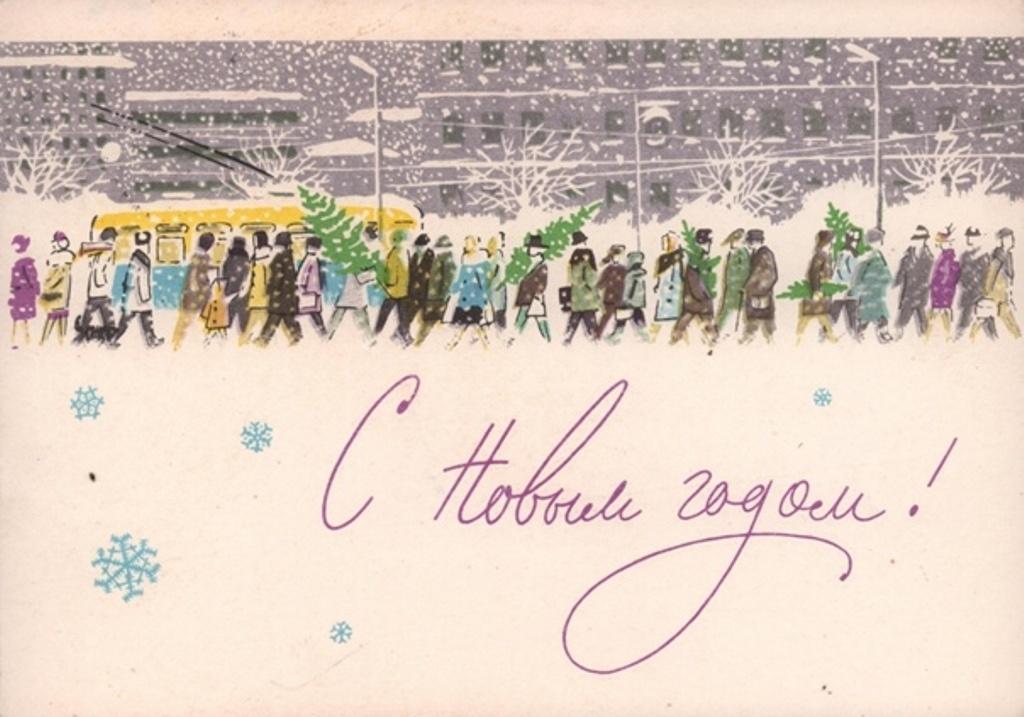 С Новым годом!